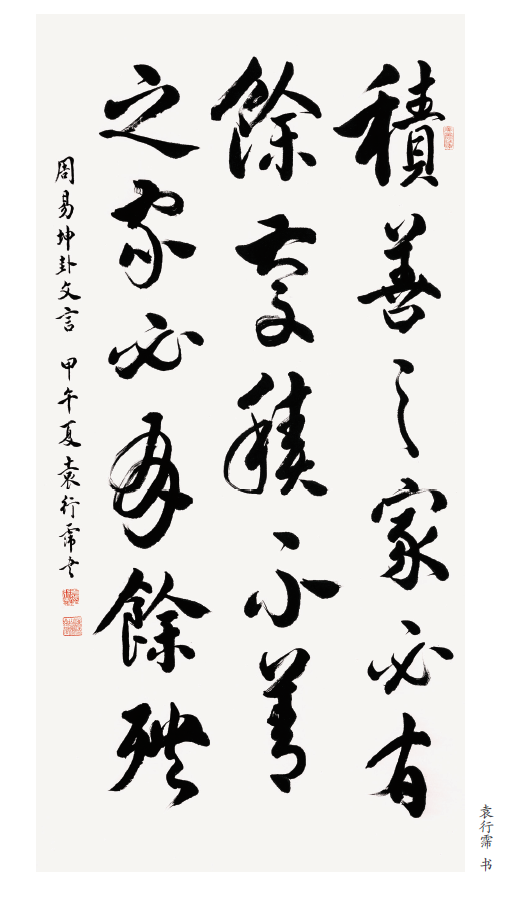 積善之家必有
餘慶積不善
之家必有餘殃
周易坤卦文言 甲午夏袁行霈書
袁行霈 书